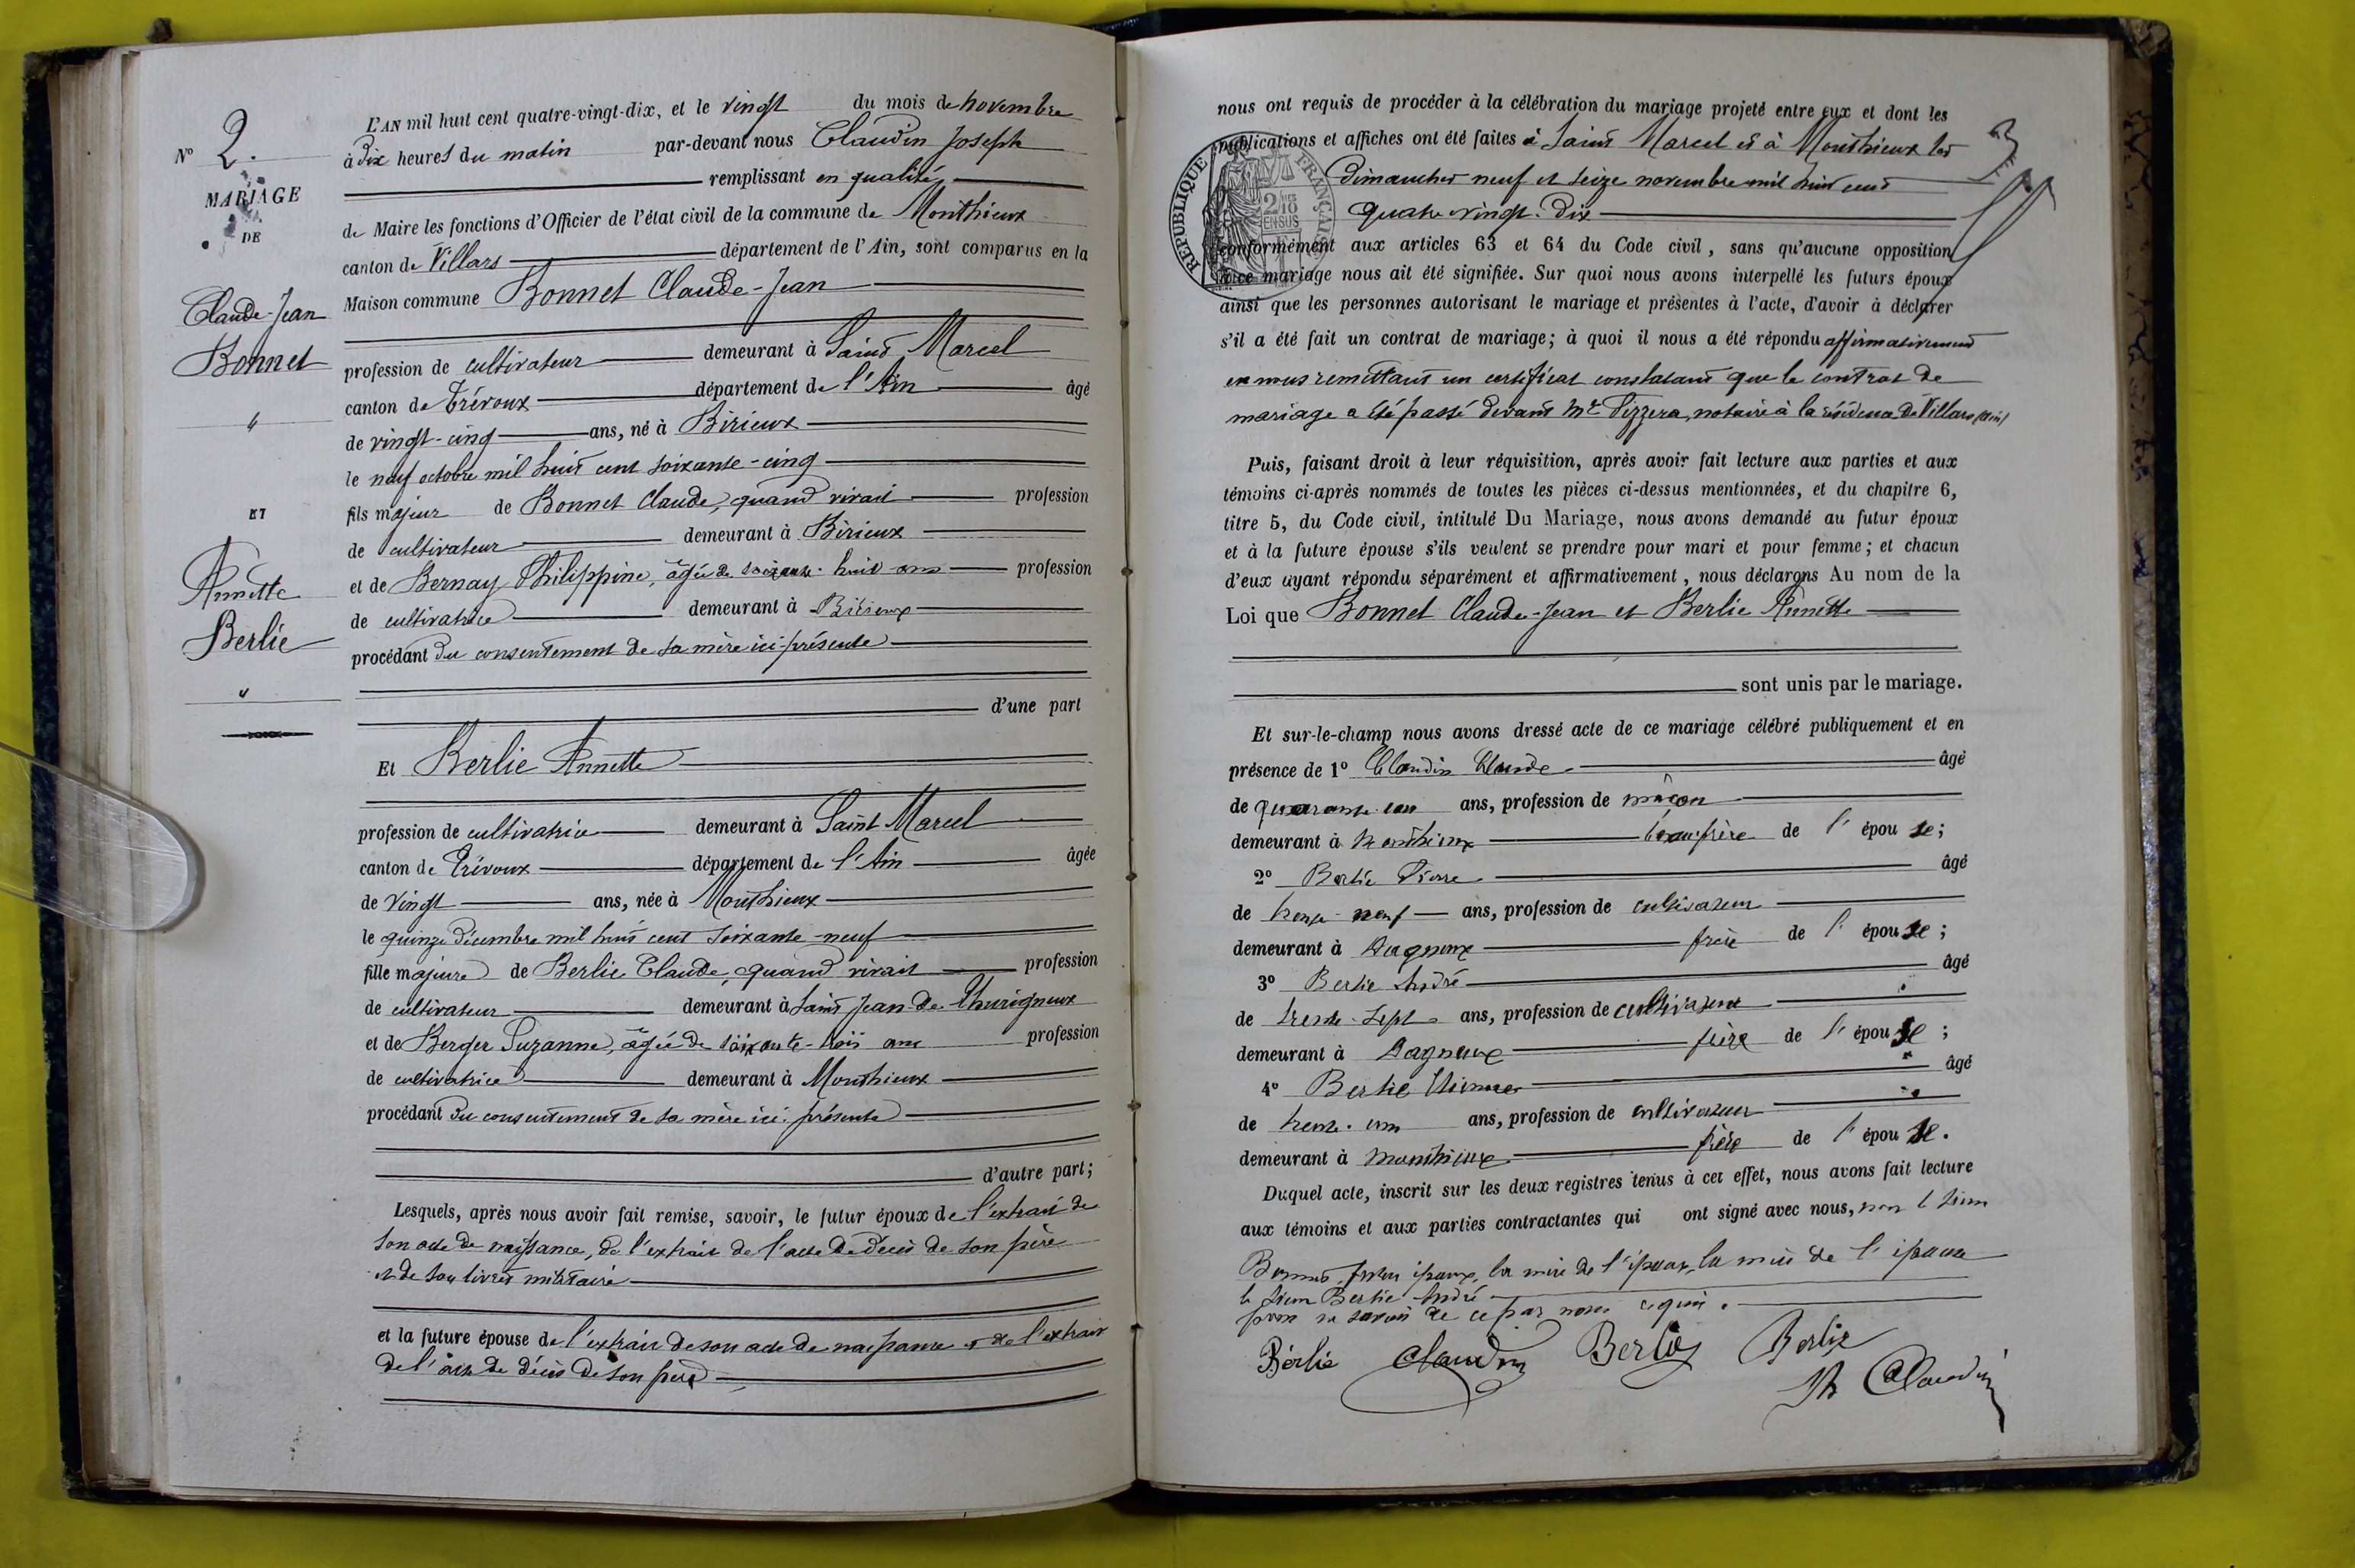 L'AN mil huit cent quatre-vingt-dix, et le vingt du mois de novembre
N° 2.
à dix heures du matin par-devant nous Claudin Joseph
remplissant en qualité
MARIAGE
DE
de Maire les fonctions d'Officier de l'état civil de la commune de Monthieux
canton de Villars département de l'Ain, sont comparus en la
Maison commune Bonnet Claude-Jean
Claude-Jean
Bonnet
profession de cultivateur demeurant à Saint Marcel
canton de Trévoux département de l'Ain âgé
de vingt-cinq ans, né à Birieux
le neuf octobre mil huit cent soixante-cinq
fils majeur de Bonnet Claude, quand vivait profession
ET
de cultivateur demeurant à Birieux
et de Bernay Philippine, âgée de soixante-huit ans profession
Annette
de cultivatrice demeurant à Birieux
Berlie
procédant du consentement de sa mère ici présente
d'une part
Et Berlie Annette
profession de cultivatrice demeurant à Saint Marcel
canton de Trévoux département de l'Ain âgée
de vingt ans, née à Monthieux
le quinze décembre mil huit cent soixante-neuf
fille majeure de Berlie Claude, quand vivait profession
de cultivateur demeurant à Saint Jean de Thurigneux
et de Berger Suzanne, âgée de soixante-trois ans profession
de cultivatrice demeurant à Monthieux
procédant du consentement de sa mère ici présente
d'autre part;
Lesquels, après nous avoir fait remise, savoir, le futur époux de l'extrait de
son acte de naissance, de l'extrait de l'acte de décès de son père
et de son livret militaire
et la future épouse de l'extrait de son acte de naissance et de l'extrait
de l'acte de décès de son père
nous ont requis de procéder à la célébration du mariage projeté entre eux et dont les
publications et affiches ont été faites à Saint Marcel et à Monthieux les
dimanches neuf et seize novembre mil huit cent
quatre vingt-dix
conformément aux articles 63 et 64 du Code civil, sans qu'aucune opposition
à ce mariage nous ait été signifiée. Sur quoi nous avons interpellé les futurs époux
ainsi que les personnes autorisant le mariage et présentes à l'acte, d'avoir à déclarer
s'il a été fait un contrat de mariage; à quoi il nous a été répondu affirmativement
en nous remettant un certificat constatant que le contrat de
mariage a été passé devant Me Pizzera, notaire à la résidence de Villars (Ain)
Puis, faisant droit à leur réquisition, après avoir fait lecture aux parties et aux
témoins ci-après nommés de toutes les pièces ci-dessus mentionnées, et du chapitre 6,
titre 5, du Code civil, intitulé Du Mariage, nous avons demandé au futur époux
et à la future épouse s'ils veulent se prendre pour mari et pour femme; et chacun
d'eux ayant répondu séparément et affirmativement, nous déclarons Au nom de la
Loi que Bonnet Claude-Jean et Berlie Annette
sont unis par le mariage.
Et sur-le-champ nous avons dressé acte de ce mariage célébré publiquement et en
présence de 1° Claudin Claude âgé
de quarante un ans, profession de maçon
demeurant à Monthieux beau-frère de l'épouse;
2° Berlie Pierre âgé
de trente-neuf ans, profession de cultivateur
demeurant à Dagneux frère de l'épouse;
3° Berlie André âgé
de trente-sept ans, profession de cultivateur
demeurant à Dagneux frère de l'épouse;
4° Berlie Etienne âgé
de trente-un ans, profession de cultivateur
demeurant à Monthieux frère de l'épouse.
Duquel acte, inscrit sur les deux registres tenus à cet effet, nous avons fait lecture
aux témoins et aux parties contractantes qui ont signé avec nous, non le sieur
Bonnet, futur époux, la mère de l'époux, la mère de l'épouse
le sieur Berlie André
pour ne savoir de ce par nous requis.
Berlie Claudin Berlie Berlie
Claudin
RÉPUBLIQUE FRANÇAISE